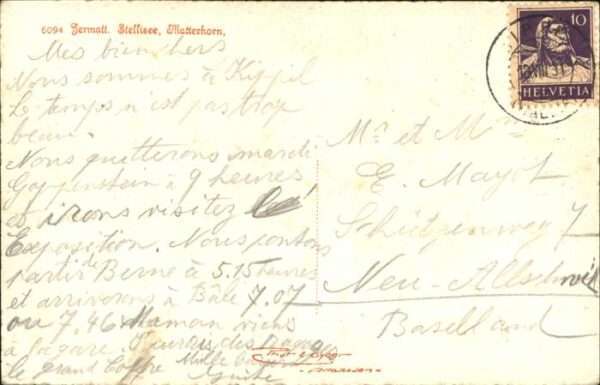 6094 Zermatt. Stellisee, Matterhorn,
Mes bien chers
Nous sommes à Kippel
Le temps n'est pas trop
beau.
Nous quitterons mardi
Goppenstein à 9 heures
et irons visiter la
Exposition. Nous partons
partir de Berne à 5.15 heures
et arriverons à Bâle 7.07
ou 7.46 Maman viens
à la gare. J'aurai des bagages
le grand Coffre Mille baisers
10
HELVETIA
Mr et Mme
E. Mayot
Schützenweg 7
Neu-Allschwil
Baselland